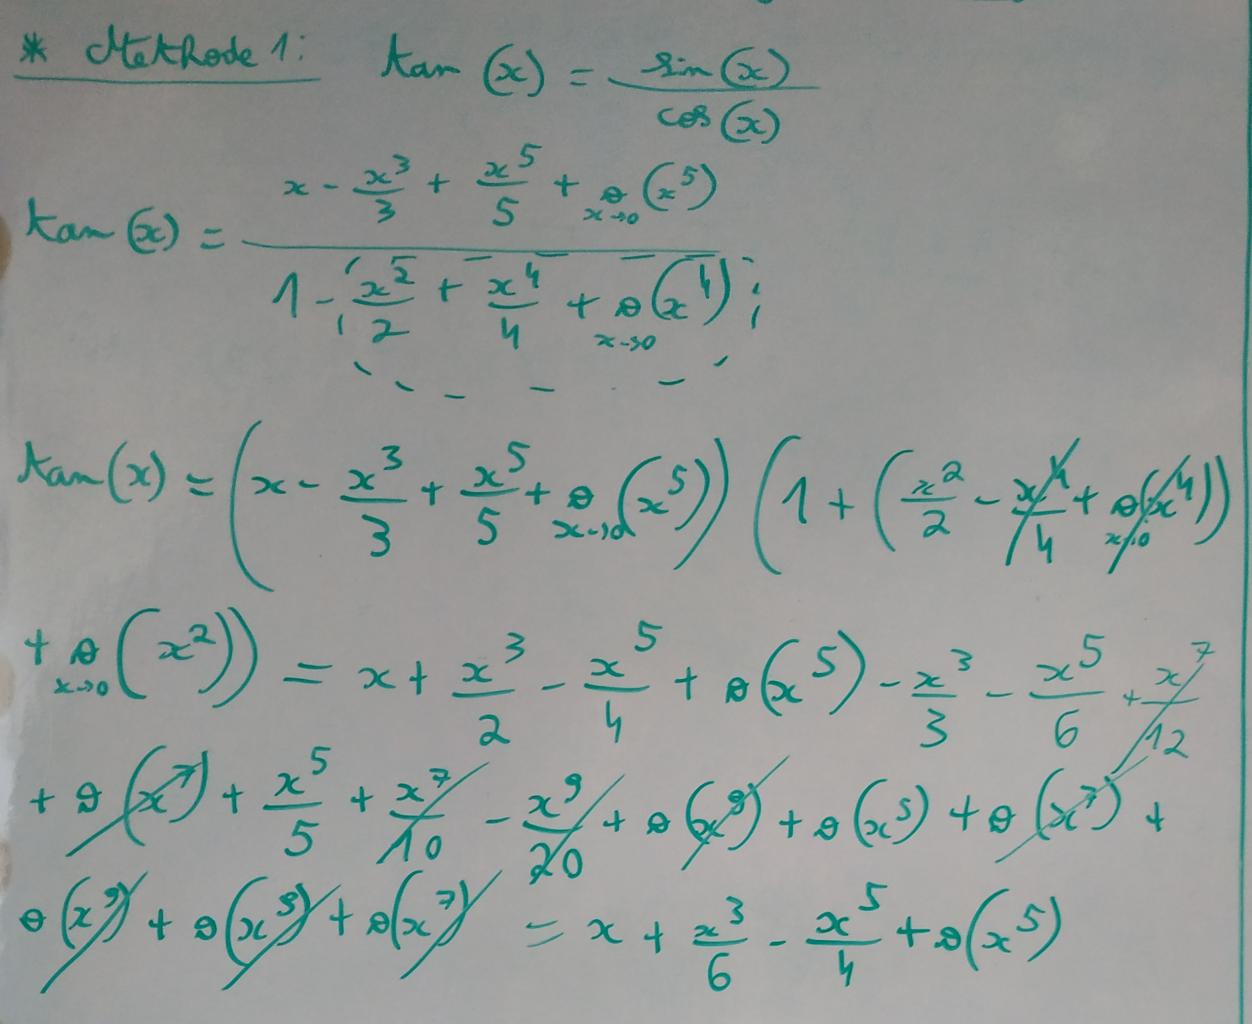 * Methode 1: tan (x) = sin (x) / cos (x)
tan (x) = (x - x^3/3 + x^5/5 + o_{x→0}(x^5)) / (1 - x^2/2 + x^4/4 + o_{x→0}(x^4))
tan (x) = (x - x^3/3 + x^5/5 + o_{x→0}(x^5)) (1 + (x^2/2 - x^4/4 + o_{x→0}(x^4))
+ o_{x→0}(x^2)) = x + x^3/2 - x^5/4 + o(x^5) - x^3/3 - x^5/6 + x^7/12
+ o(x^7) + x^5/5 + x^7/10 - x^9/20 + o(x^9) + o(x^5) + o(x^7) +
o(x^9) + o(x^9) + o(x^7) = x + x^3/6 - x^5/4 + o(x^5)